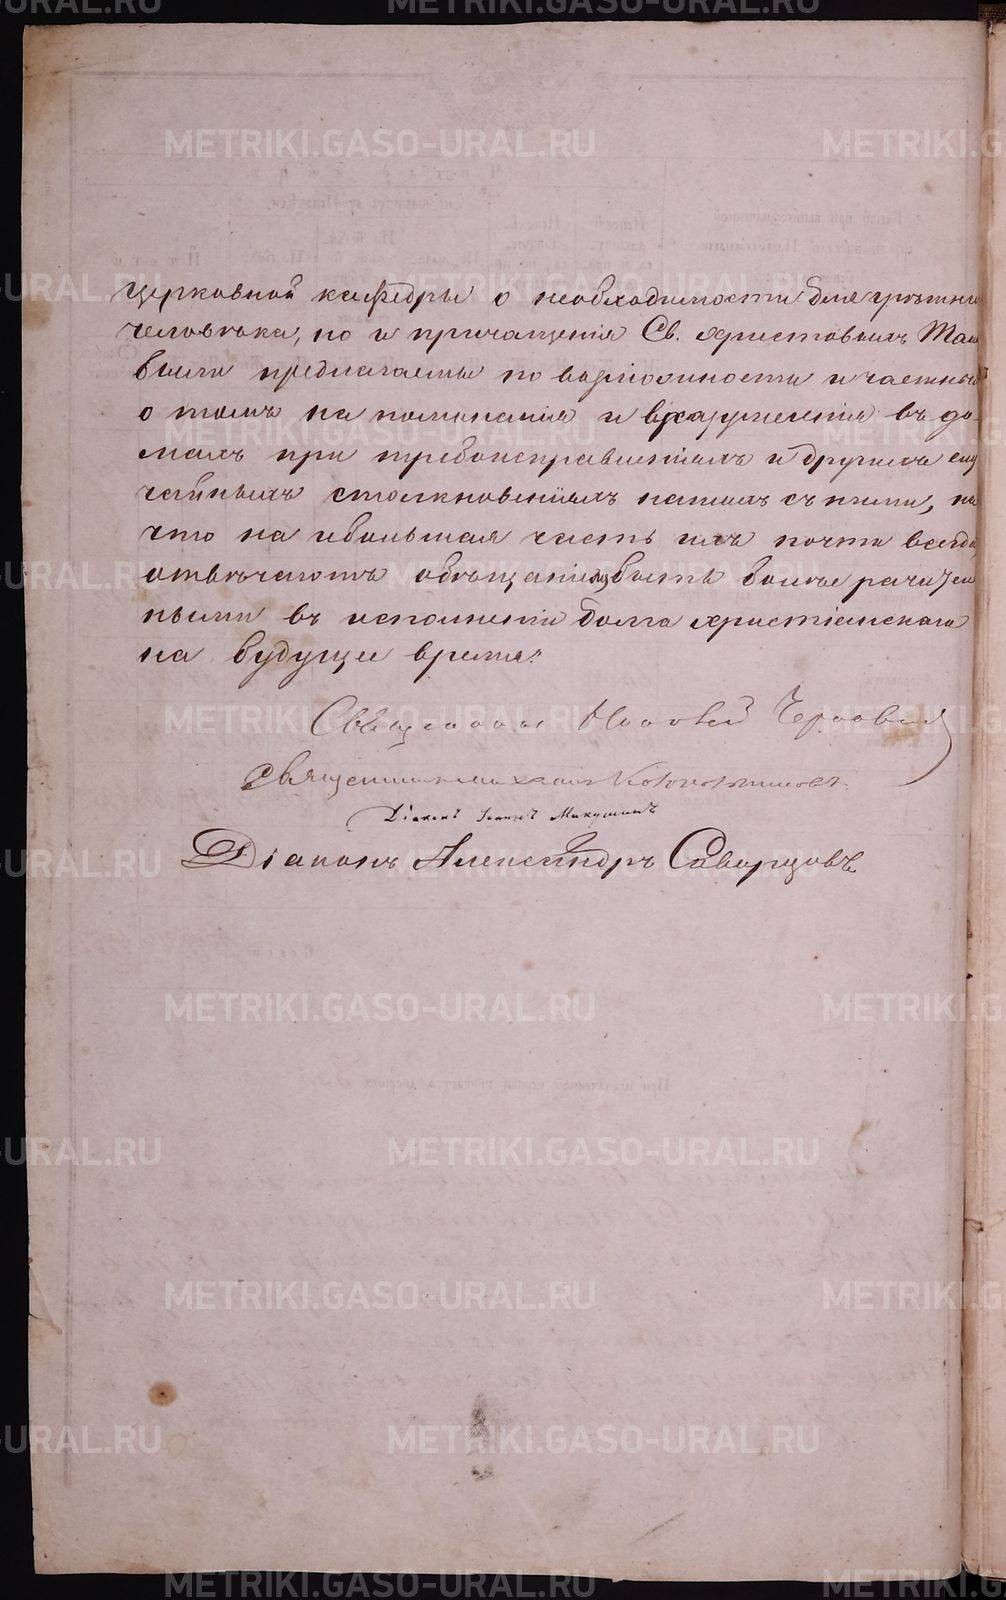 церковной кафедры о необходимости для грѣшна
человѣка, но и причащенія Св. Христовыхъ Таи
были предлагаемы по возможности и частныя
о томъ на поминанія и вразумленія въ до-
махъ при требоисправленіяхъ и другихъ слу
чайныхъ столкновеніяхъ нашихъ съ ними, на
что на ибольшая часть ихъ почти всегда
отвѣчаютъ обѣщаніемъ быть болѣе рачитель
ными въ исполненіи долга христіанскаго
на будущее время.
Священникъ
Священникъ Михаилъ
Діаконъ Іоаннъ Микушинъ
Діаконъ Александръ Скворцовъ
METRIKI.GASO-URAL.RU